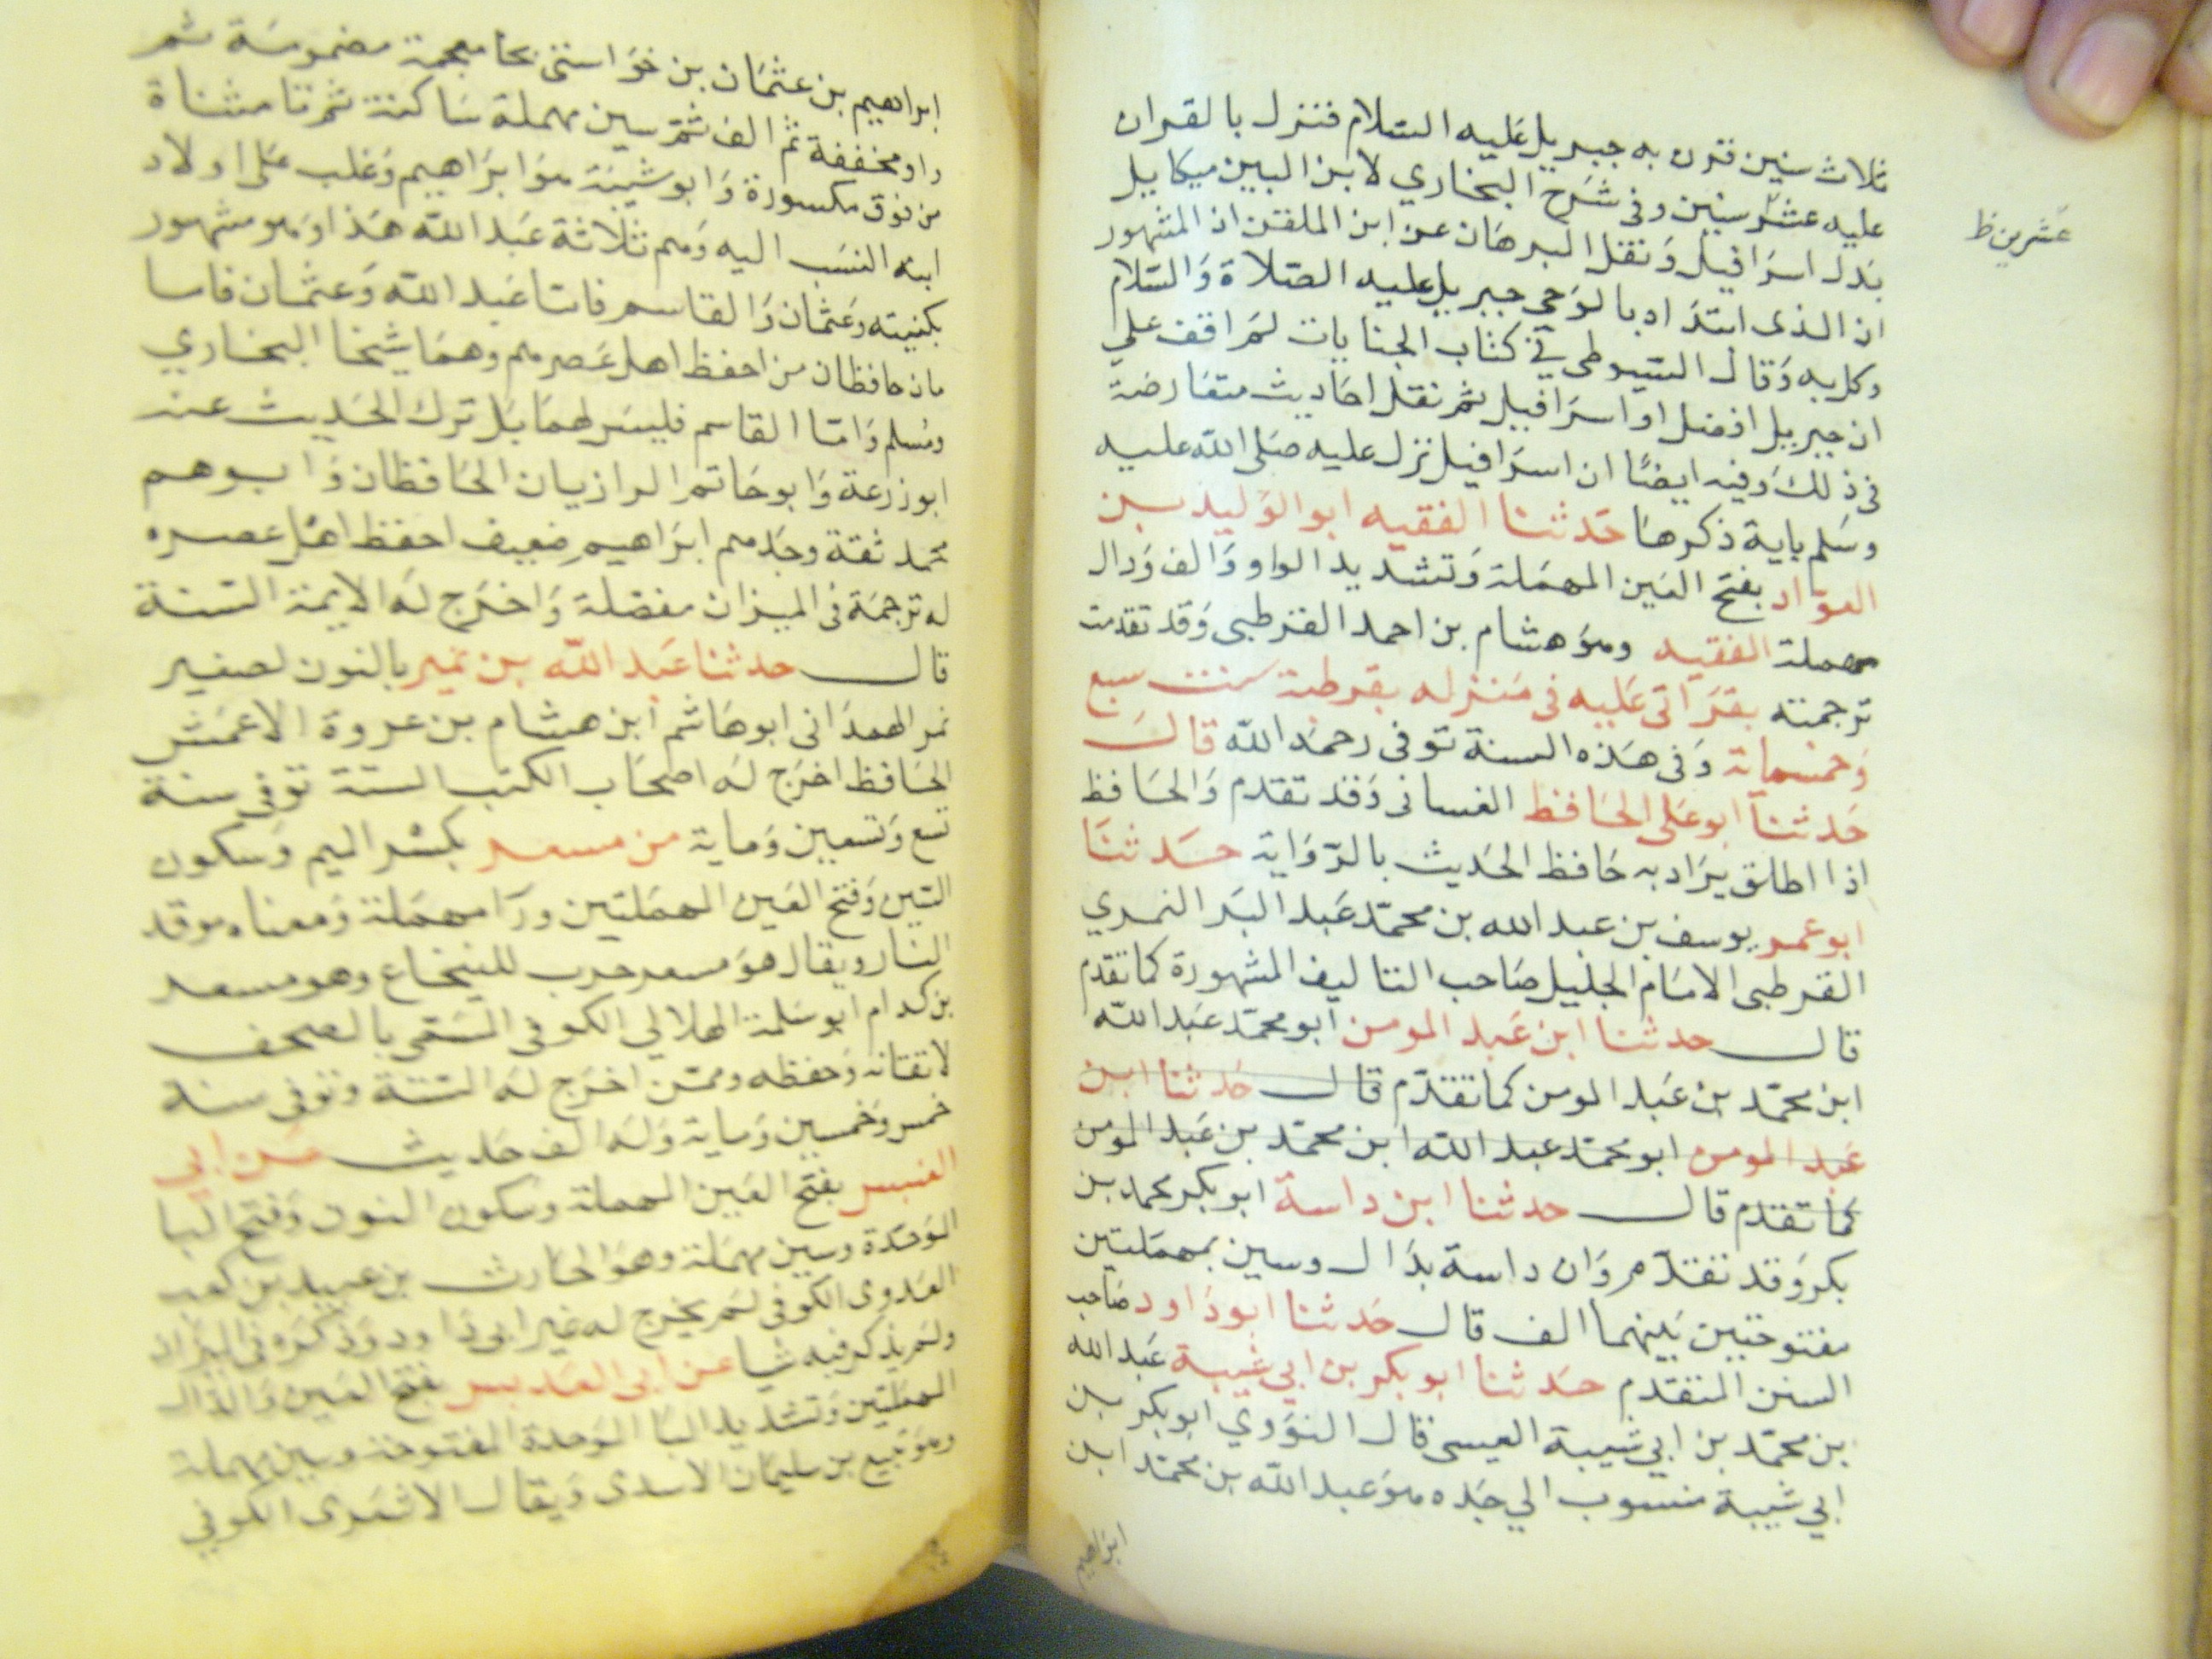 ثلاث سنين قرن به جبريل عليه السلام فنزل بالقران
عليه عشر سنين وفى شرح البخاري لابن البين ميكاييل
عشرين ظ
بدل اسرافيل ونقل البرهان عن ابن الملقن ان المشهور
ان الذى ابتداه بالوحى جبريل عليه الصلاة والسلام
وكل به وقال السيوطى في كتاب الجنايات لم اقف على
ان جبريل افضل او اسرافيل ثم نقل احاديث متعارضة
فى ذلك وفيه ايضا ان اسرافيل نزل عليه صلى الله عليه
وسلم باية ذكرها حدثنا الفقيه ابو الوليد بن
العواد بفتح العين المهملة وتشديد الواو والف ودال
مهملة الفقيه وهو هشام بن احمد القرطبى وقد تقدمت
ترجمته بقراتى عليه فى منزله بقرطبة سنت سبع
وخمسماية وفى هذه السنة توفى رحمه الله قال
حدثنا ابو على الحافظ الغسانى وقد تقدم والحافظ
اذا اطلق يراد به حافظ الحديث بالرواية حدثنا
ابو عمر يوسف بن عبد الله بن محمد عبد البر النمري
القرطبى الامام الجليل صاحب التاليف المشهورة كما تقدم
قال حدثنا ابن عبد المومن ابو محمد عبد الله
ابن محمد بن عبد المومن كما تقدم قال حدثنا ابن
عبد المومن ابو محمد عبد الله ابن محمد بن عبد المومن
كما تقدم قال حدثنا ابن داسة ابو بكر محمد بن
بكر وقد تقدم وان داسة بدال وسين بمهملتين
مفتوحتين بينهما الف قال حدثنا ابو داود صاحب
السنن المتقدم حدثنا ابو بكر بن ابي شيبة عبد الله
بن محمد بن ابي شيبة العيسى قال النووي ابو بكر بن
ابي شيبة منسوب الي جده هو عبد الله بن محمد ابن
ابراهيم
ابراهيم بن عثمان بن خواستى بخا معجمة مضمومة ثم
واو مخففة ثم الف ثم سين مهملة ساكنة ثم تا مثناة
من فوق مكسورة وابو شيبة هو ابراهيم وغلب على اولاد
ابنه النسب اليه وهم ثلاثة عبد الله هذا وهو مشهور
بكنيته وعثمان والقاسم فاما عبد الله وعثمان فاما
مان حافظان من احفظ اهل عصرهم وهما شيخا البخاري
ومسلم واما القاسم فليس لهما بل ترك الحديث عنه
ابو زرعة وابو حاتم الرازيان الحافظان وابوهم
محمد ثقة وجدهم ابراهيم ضعيف احفظ اهل عصره
له ترجمة فى الميزان مفصلة واخرج له الايمة الستة
قال حدثنا عبد الله بن نمير بالنون لصغير
نمر الهمدانى ابو هاشم ابن هشام بن عروة الاعمش
الحافظ اخرج له اصحاب الكتب الستة توفى سنة
تسع وتسعين وماية من مسعر بكسر الميم وسكون
السين وفتح العين المهملتين ورا مهملة ومعناه موقد
النار ويقال هو مسعر حرب للشجاع وهو مسعر
بن كدام ابو سلمة الهلالي الكوفى السمى بالمصحف
لاتقانه وحفظه وممن اخرج له الستة وتوفى سنة
خمس وخمسين وماية وله الف حديث عن ابي
العنبس بفتح العين المهملة وسكون النون وفتح البا
الموحدة وسين مهملة وهو الحارث بن عبيد بن كعب
العدوى الكوفى لم يخرج له غير ابى داود وذكره فى الميزان
ولم يذكر فيه شيا عن ابى العدبس بفتح العين والدال
المهملتين وتشديد البا الموحدة المفتوحة وسين مهملة
وهو تبيع بن سليمان الاسدى ويقال الاشعرى الكوفي